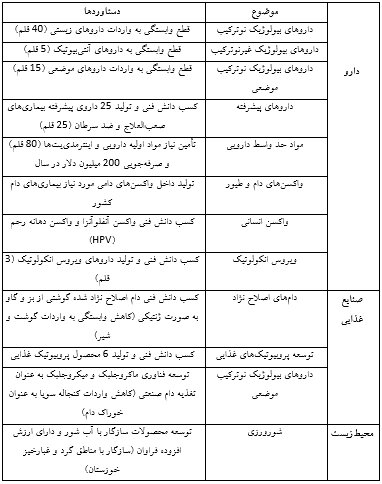 موضوع
دستاوردها
دارو
داروهای بیولوژیک نوترکیب
قطع وابستگی به واردات داروهای زیستی (40 قلم)
داروهای بیولوژیک غیرنوترکیب
قطع وابستگی به داروهای آنتی‌بیوتیک (5 قلم)
داروهای بیولوژیک نوترکیب
موضعی
قطع وابستگی به واردات داروهای موضعی (15 قلم)
داروهای پیشرفته
کسب دانش فنی و تولید 25 داروی پیشرفته بیماری‌های
صعب‌العلاج و ضد سرطان (25 قلم)
مواد حد واسط دارویی
تأمین نیاز مواد اولیه دارویی و اینترمدیت‌ها (80 قلم)
و صرفه‌جویی 200 میلیون دلار در سال
واکسن‌های دام و طیور
تولید داخل واکسن‌های دامی مورد نیاز بیماری‌های دام
کشور
واکسن انسانی
کسب دانش فنی واکسن آنفلوآنزا و واکسن دهانه رحم
(HPV)
ویروس انکولوتیک
کسب دانش فنی و تولید داروهای ویروس انکولوتیک (3
قلم)
صنایع
غذایی
دام‌های اصلاح نژاد
کسب دانش فنی دام اصلاح نژاد شده گوشتی از بز و گاو
به صورت ژنتیکی (کاهش وابستگی به واردات گوشت و
شیر)
توسعه پروبیوتیک‌های غذایی
کسب دانش فنی و تولید 6 محصول پروبیوتیک غذایی
داروهای بیولوژیک نوترکیب
موضعی
توسعه فناوری ماکروجلبک و میکروجلبک به عنوان
تغذیه دام صنعتی (کاهش واردات کنجاله سویا به عنوان
خوراک دام)
محیط‌زیست
شورورزی
توسعه محصولات سازگار با آب شور و دارای ارزش
افزوده فراوان (سازگار با مناطق گرد و غبارخیز
خوزستان)